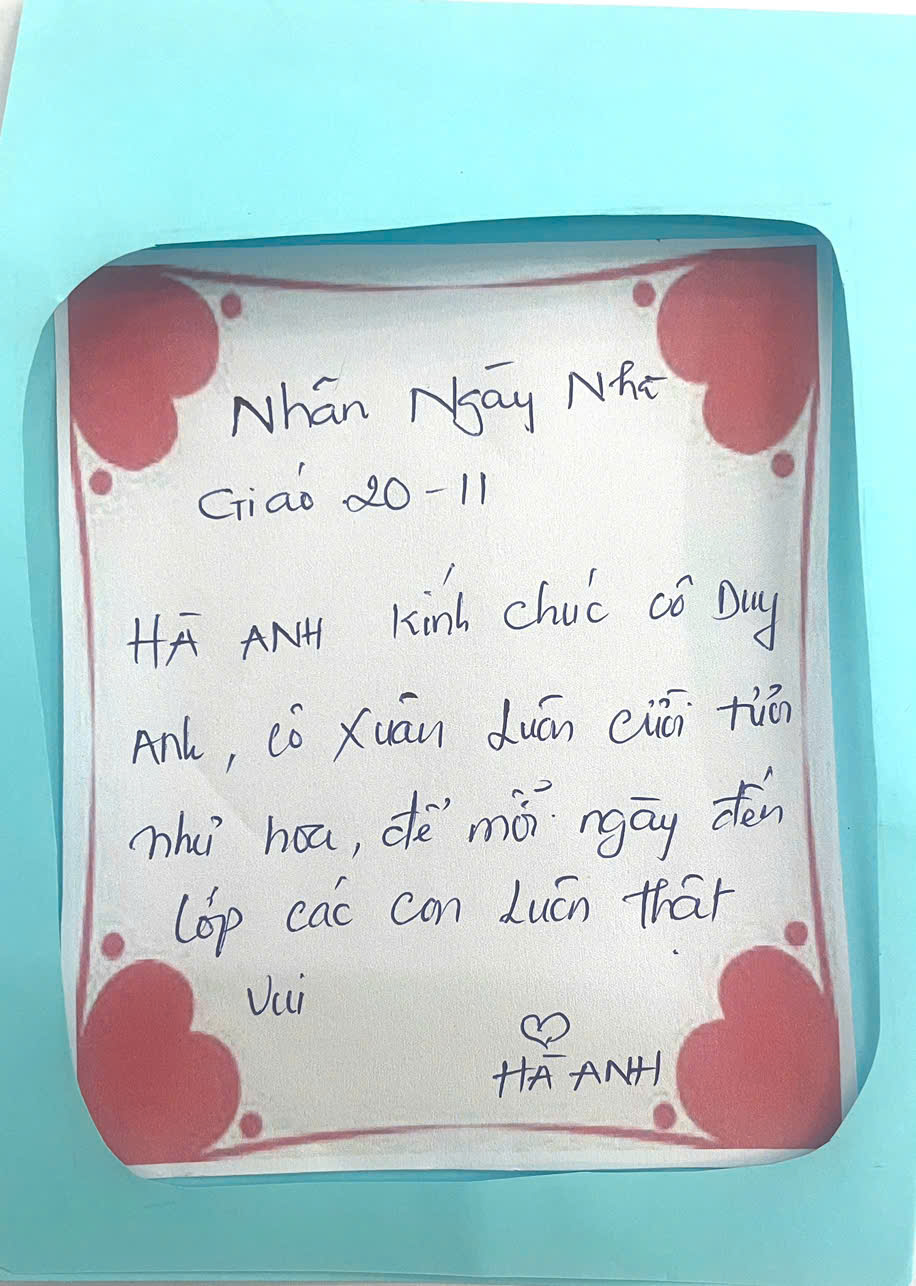 Nhân Ngày Nhà
Giáo 20-11
HÀ ANH kính chúc cô Duy
Anh, cô Xuân luôn cười tươi
như hoa, để mỗi ngày đến
lớp các con luôn thật
vui
HÀ ANH